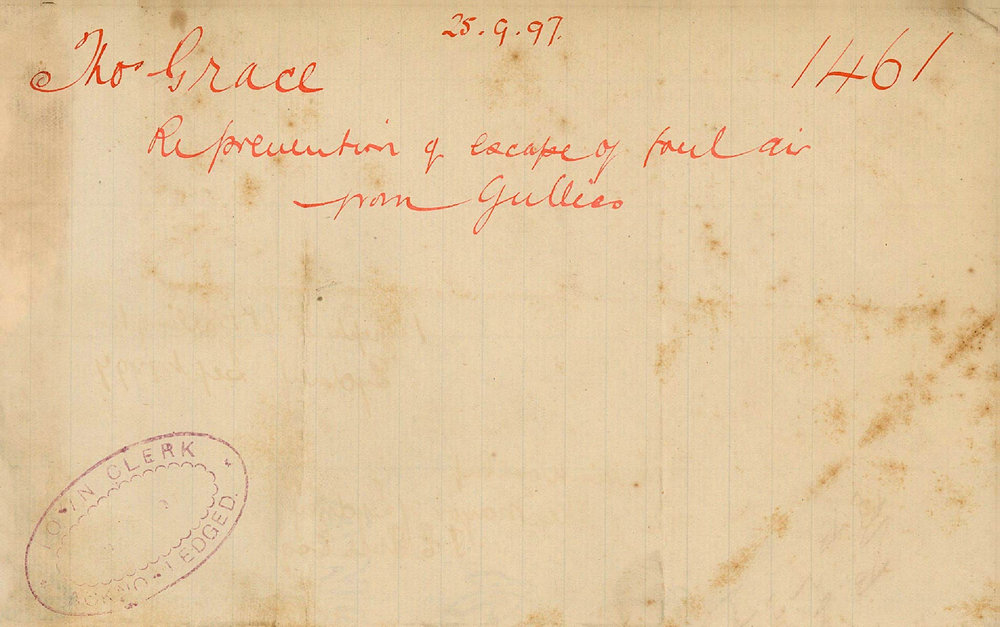 25.9.97.
Thos Grace 1461
Re prevention of escape of foul air
from Gullies
TOWN CLERK
ACKNOWLEDGED.